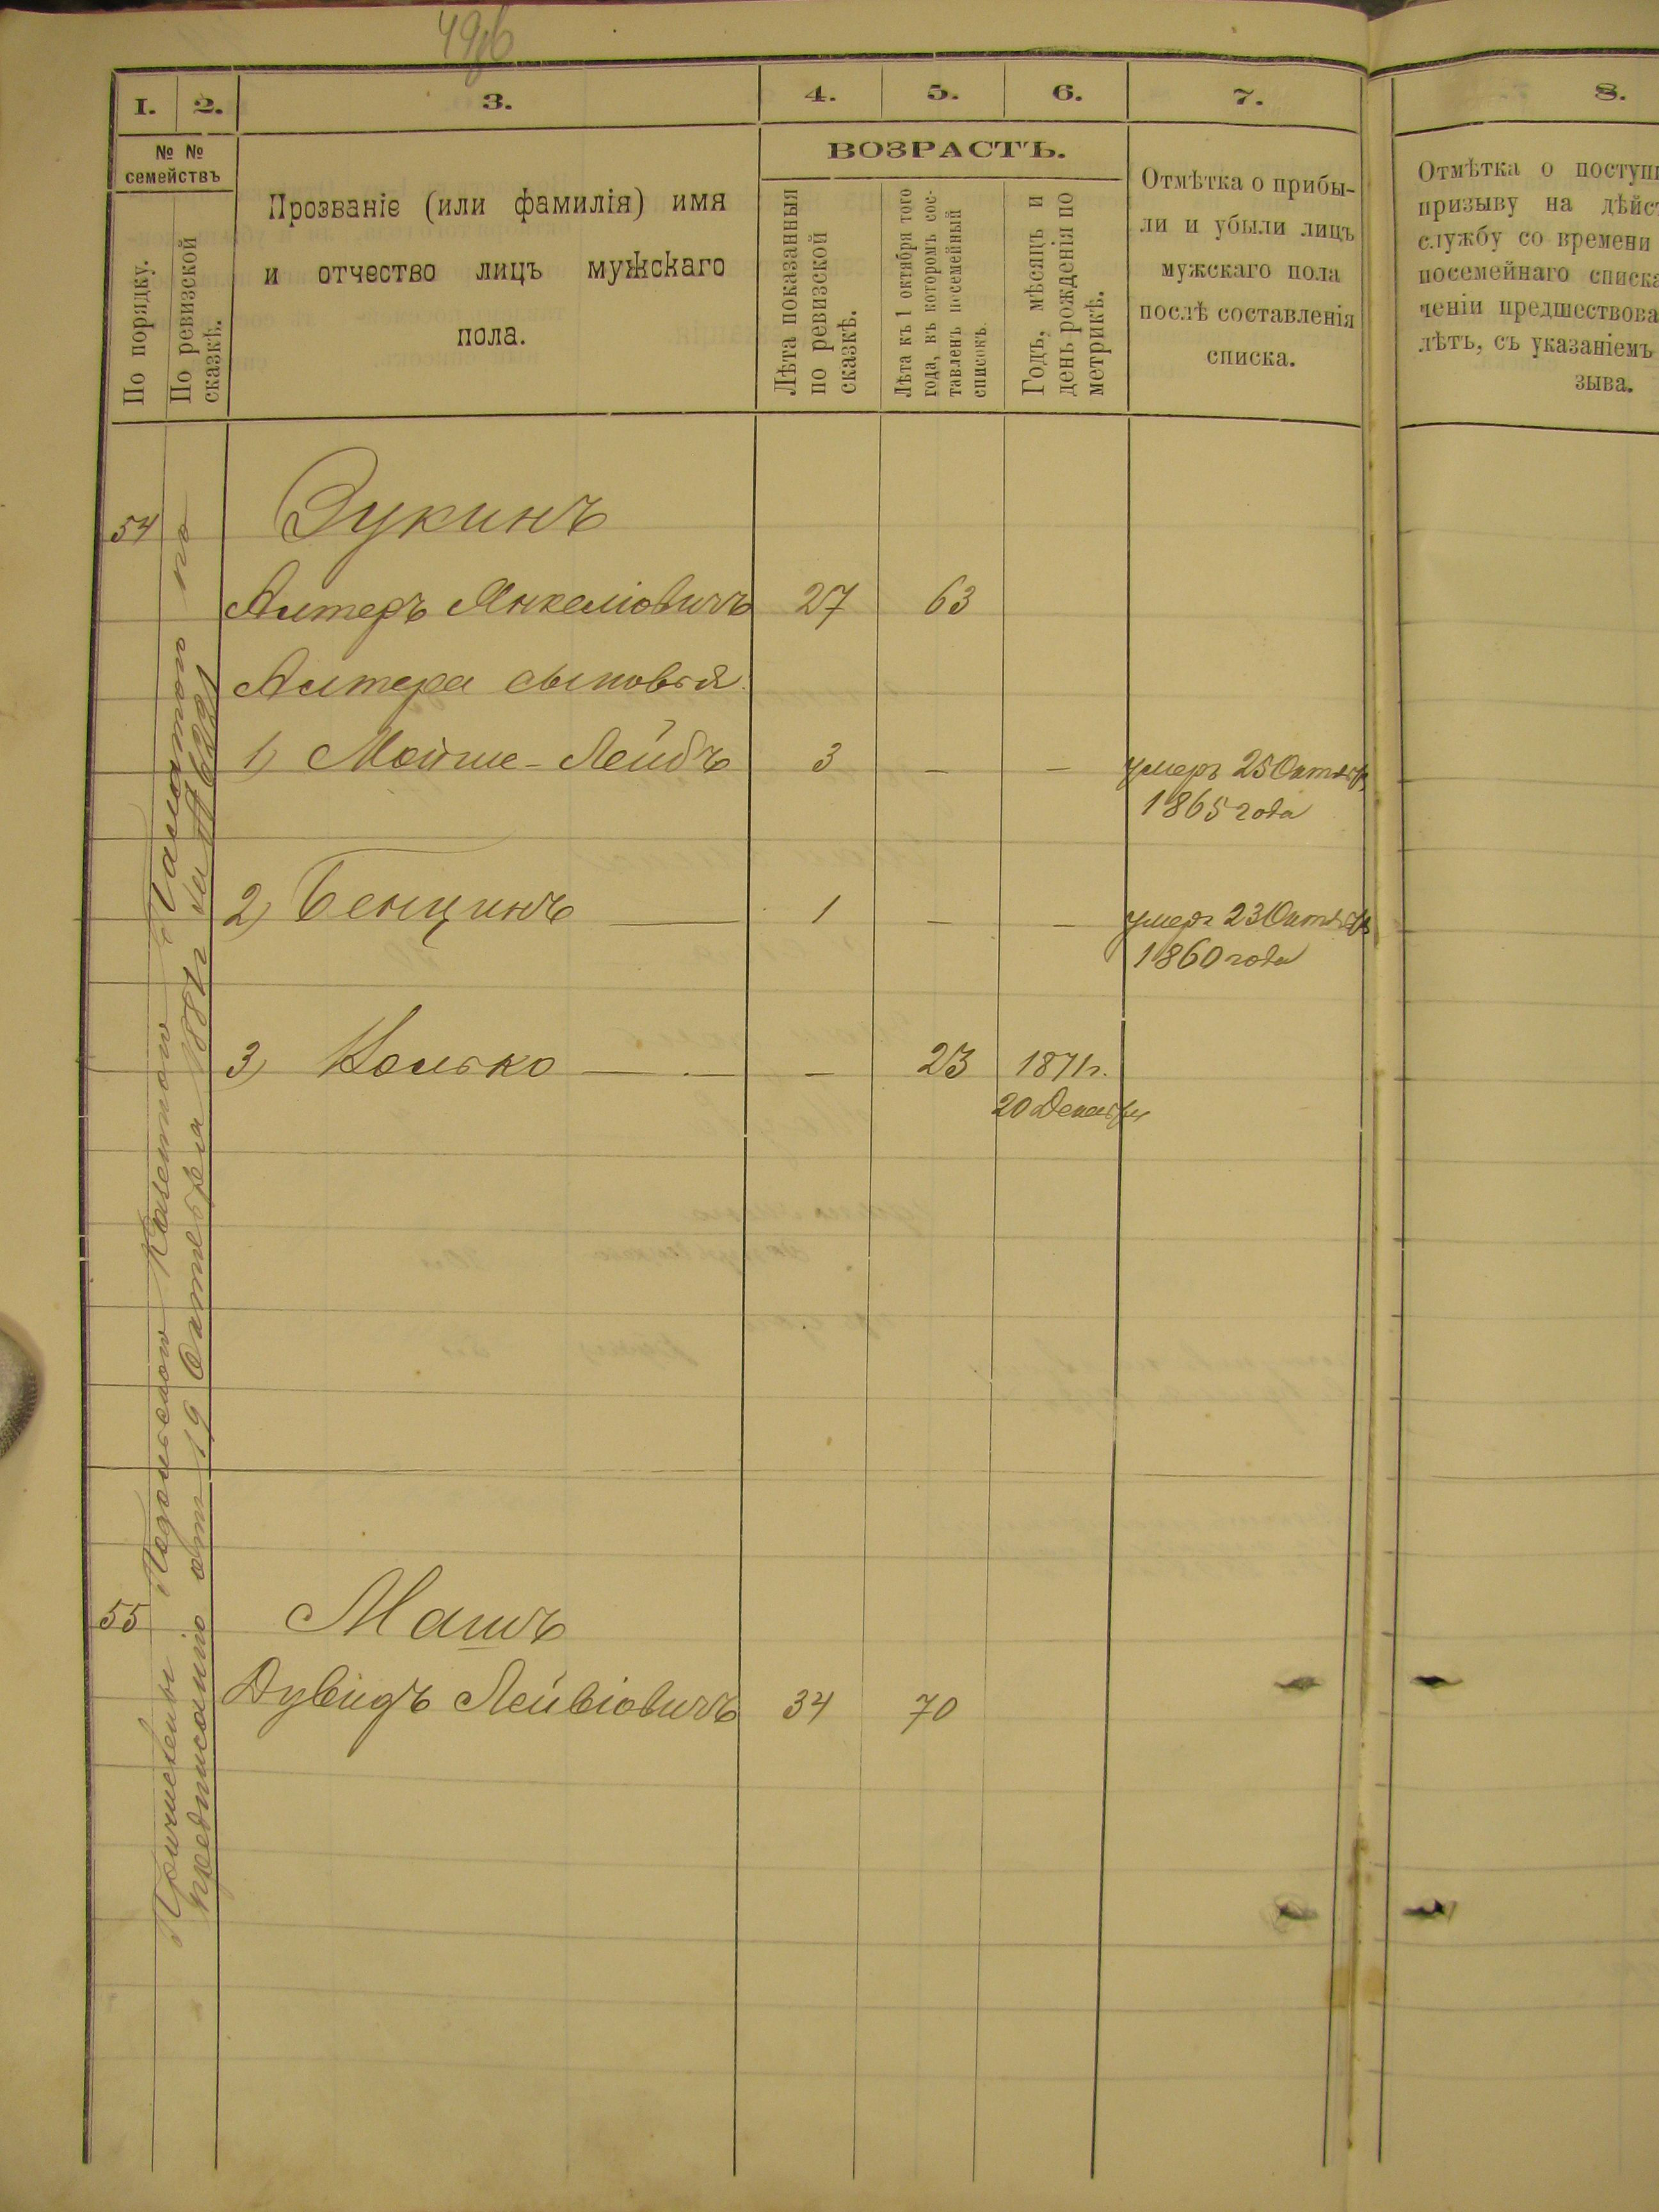 I. 2. 3. 4. 5. 6. 7. 8.
№ №
семействъ
По порядку.
По ревизской
сказкѣ.
Прозваніе (или фамилія) имя
и отчество лицъ мужскаго
пола.
ВОЗРАСТЪ.
Лѣта показанныя
по ревизской
сказкѣ.
Лѣта къ 1 октября того
года, въ которомъ сос-
тавленъ посемейный
списокъ.
Годъ, мѣсяцъ и
день рожденія по
метрикѣ.
Отмѣтка о прибы-
ли и убыли лицъ
мужскаго пола
послѣ составленія
списка.
Отмѣтка о поступ
призыву на дѣйс
службу со времени
посемейнаго списка
ченіи предшествова
лѣтъ, съ указаніемъ
зыва.
54 Зукинъ
Алтеръ Янкеліовичъ 27 63
Алтера сыновья:
1) Мойше-Лейбъ 3 — — умеръ 25 Октября
1865 года
2) Бенцинъ — 1 — — умеръ 23 Октября
1860 года
3) Колько — — — 23 1871г.
20 Декабря
55 Машъ
Дувидъ Лейвіовичъ 34 70
Причислены Подольскою Казенною Палатою по
предписанію отъ 19 Октября 1881г за №